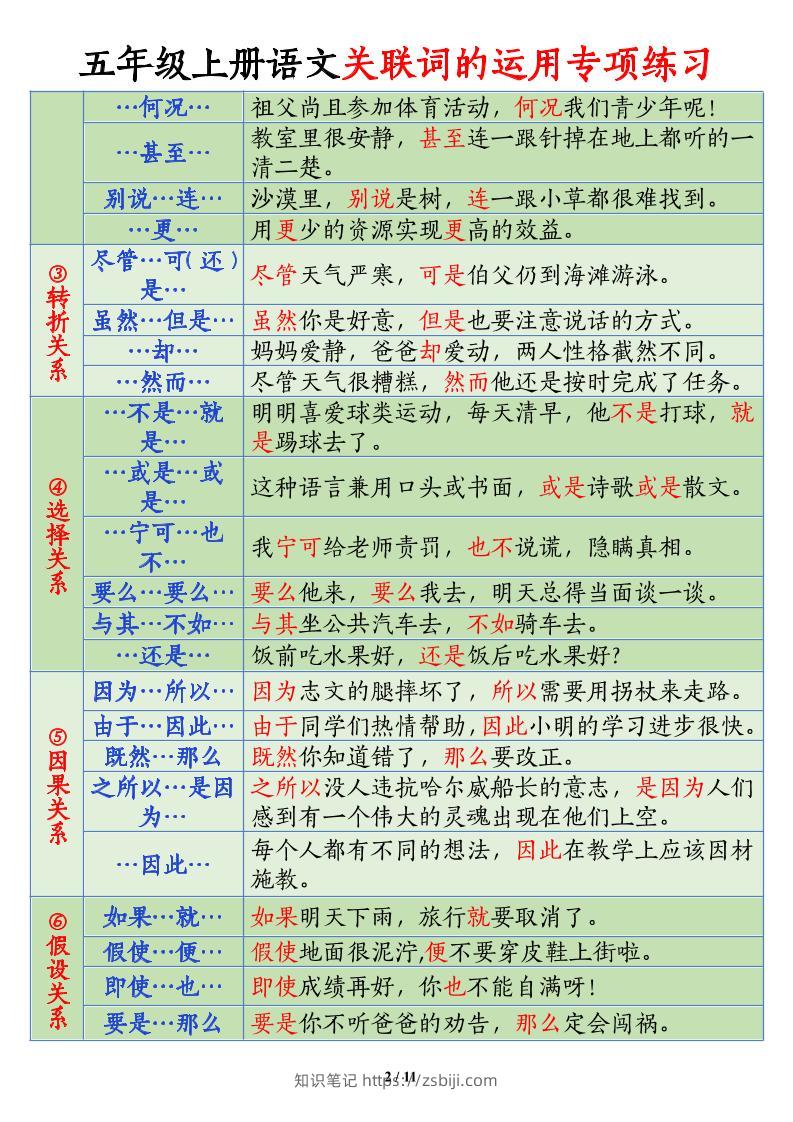 五年级上册语文关联词的运用专项练习
…何况…
祖父尚且参加体育活动，何况我们青少年呢！
…甚至…
教室里很安静，甚至连一跟针掉在地上都听的一
清二楚。
别说…连…
沙漠里，别说是树，连一跟小草都很难找到。
…更…
用更少的资源实现更高的效益。
③转折关系
尽管…可（还）
是…
尽管天气严寒，可是伯父仍到海滩游泳。
虽然…但是…
虽然你是好意，但是也要注意说话的方式。
…却…
妈妈爱静，爸爸却爱动，两人性格截然不同。
…然而…
尽管天气很糟糕，然而他还是按时完成了任务。
④选择关系
…不是…就
是…
明明喜爱球类运动，每天清早，他不是打球，就
是踢球去了。
…或是…或
是…
这种语言兼用口头或书面，或是诗歌或是散文。
…宁可…也
不…
我宁可给老师责罚，也不说谎，隐瞒真相。
要么…要么…
要么他来，要么我去，明天总得当面谈一谈。
与其…不如…
与其坐公共汽车去，不如骑车去。
…还是…
饭前吃水果好，还是饭后吃水果好？
⑤因果关系
因为…所以…
因为志文的腿摔坏了，所以需要用拐杖来走路。
由于…因此…
由于同学们热情帮助,因此小明的学习进步很快。
既然…那么
既然你知道错了，那么要改正。
之所以…是因
为…
之所以没人违抗哈尔威船长的意志，是因为人们
感到有一个伟大的灵魂出现在他们上空。
…因此…
每个人都有不同的想法，因此在教学上应该因材
施教。
⑥假设关系
如果…就…
如果明天下雨，旅行就要取消了。
假使…便…
假使地面很泥泞,便不要穿皮鞋上街啦。
即使…也…
即使成绩再好，你也不能自满呀！
要是…那么
要是你不听爸爸的劝告，那么定会闯祸。
2 / 11
知识笔记 https://zsbiji.com